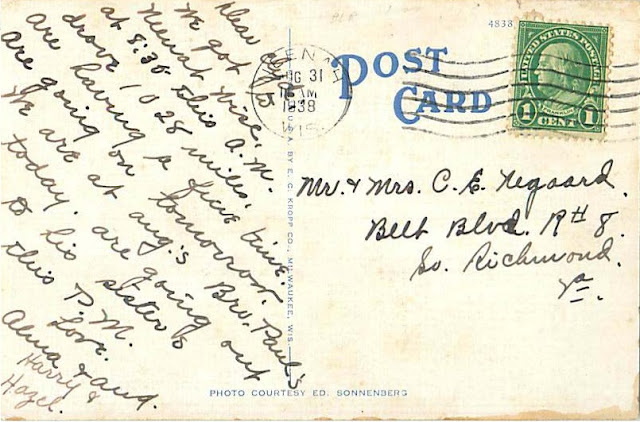 Dear
We got
Neenah Wisc,
at 8:30 this A.M.
drove 1028 miles.
are having a fine time
are going on tomorrow.
We are at Aug's Bro. Paul's
today. are going out
to his sister's
this P.M.
Love.
Alma & Aug.
Harry &
Hazel.
4838
POST
CARD
AUG 31
AM
1938
WIS.
UNITED STATES POSTAGE
1 CENT 1
Mr. & Mrs. C. E. Negaard.
Belt Blvd. R# 8.
So. Richmond.
Va.
U.S.A. BY E. C. KROPP CO., MILWAUKEE, WIS.
PHOTO COURTESY ED. SONNENBERG